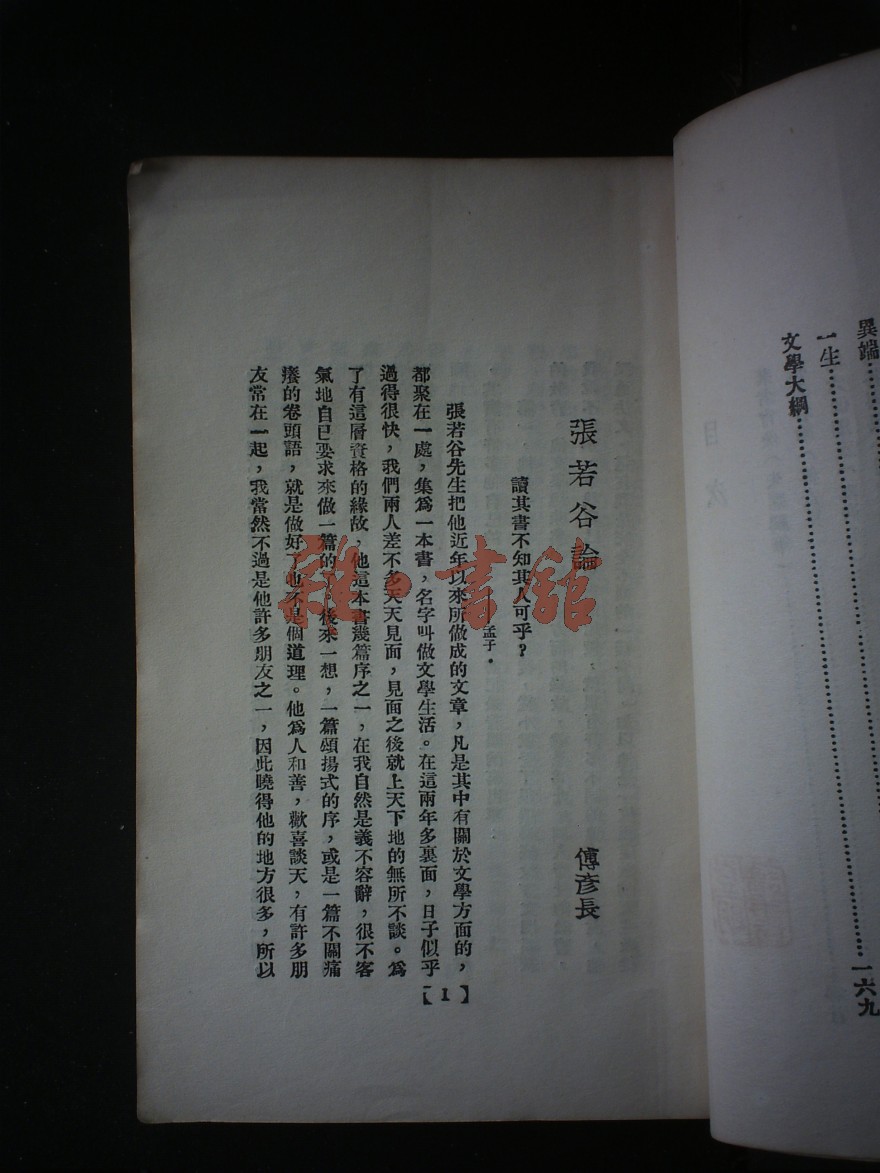 異端
一生
文學大綱
一六九
目次
張若谷論
傅彥長
讀其書不知其人可乎?
孟子。
張若谷先生把他近年以來所做成的文章,凡是其中有關於文學方面的,
都聚在一處,集爲一本書,名字叫做文學生活。在這兩年多裏面,日子似乎
過得很快,我們兩人差不多天天見面,見面之後就上天下地的無所不談。爲
了有這層資格的緣故,他這本書幾篇序之一,在我自然是義不容辭,很不客
氣地自已要求來做一篇的了。後來一想,一篇頌揚式的序,或是一篇不關痛
癢的卷頭語,就是做好了也不是個道理。他爲人和善,歡喜談天,有許多朋
友常在一起,我當然不過是他許多朋友之一,因此曉得他的地方很多,所以
【1】
雜·書館